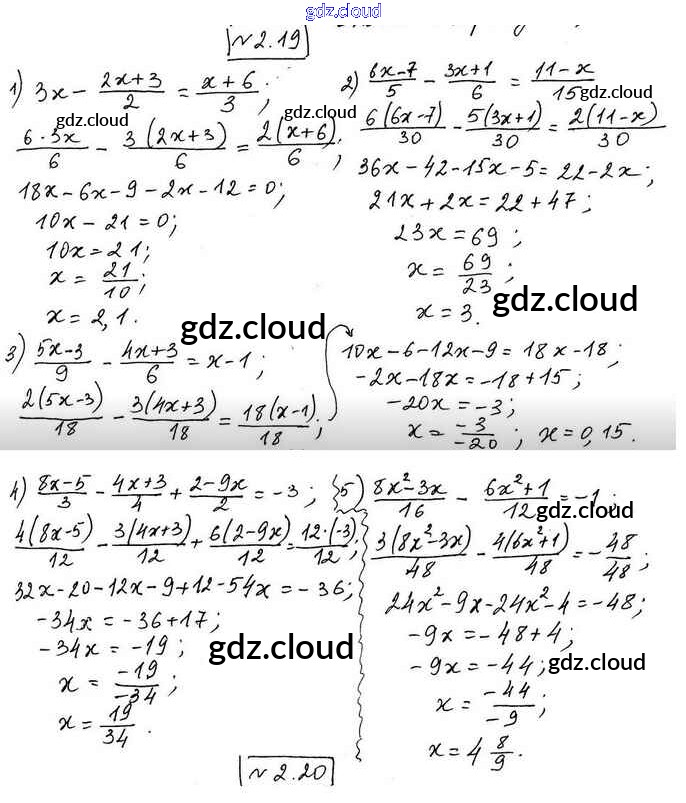 gdz.cloud
№2.19
1) 3x - (2x+3)/2 = (x+6)/3;
gdz.cloud
(6·3x)/6 - 3(2x+3)/6 = 2(x+6)/6;
gdz.cloud
18x-6x-9-2x-12=0;
10x-21=0;
10x=21;
x = 21/10;
x = 2,1.
gdz.cloud
2) (6x-7)/5 - (3x+1)/6 = (11-x)/15;
gdz.cloud
6(6x-7)/30 - 5(3x+1)/30 = 2(11-x)/30
gdz.cloud
36x-42-15x-5=22-2x;
21x+2x=22+47;
23x=69;
x = 69/23;
x = 3.
gdz.cloud
3) (5x-3)/9 - (4x+3)/6 = x-1;
2(5x-3)/18 - 3(4x+3)/18 = 18(x-1)/18;
10x-6-12x-9=18x-18;
-2x-18x=-18+15;
-20x=-3;
x = -3/-20; x=0,15.
4) (8x-5)/3 - (4x+3)/4 + (2-9x)/2 = -3;
4(8x-5)/12 - 3(4x+3)/12 + 6(2-9x)/12 = 12·(-3)/12;
32x-20-12x-9+12-54x=-36;
-34x=-36+17;
-34x=-19;
gdz.cloud
x = -19/-34;
x = 19/34.
5) (8x²-3x)/16 - (6x²+1)/12 = -1;
gdz.cloud
3(8x²-3x)/48 - 4(6x²+1)/48 = -48/48;
24x²-9x-24x²-4=-48;
-9x=-48+4;
-9x=-44;
gdz.cloud
x = -44/-9;
x = 4 8/9.
№2.20